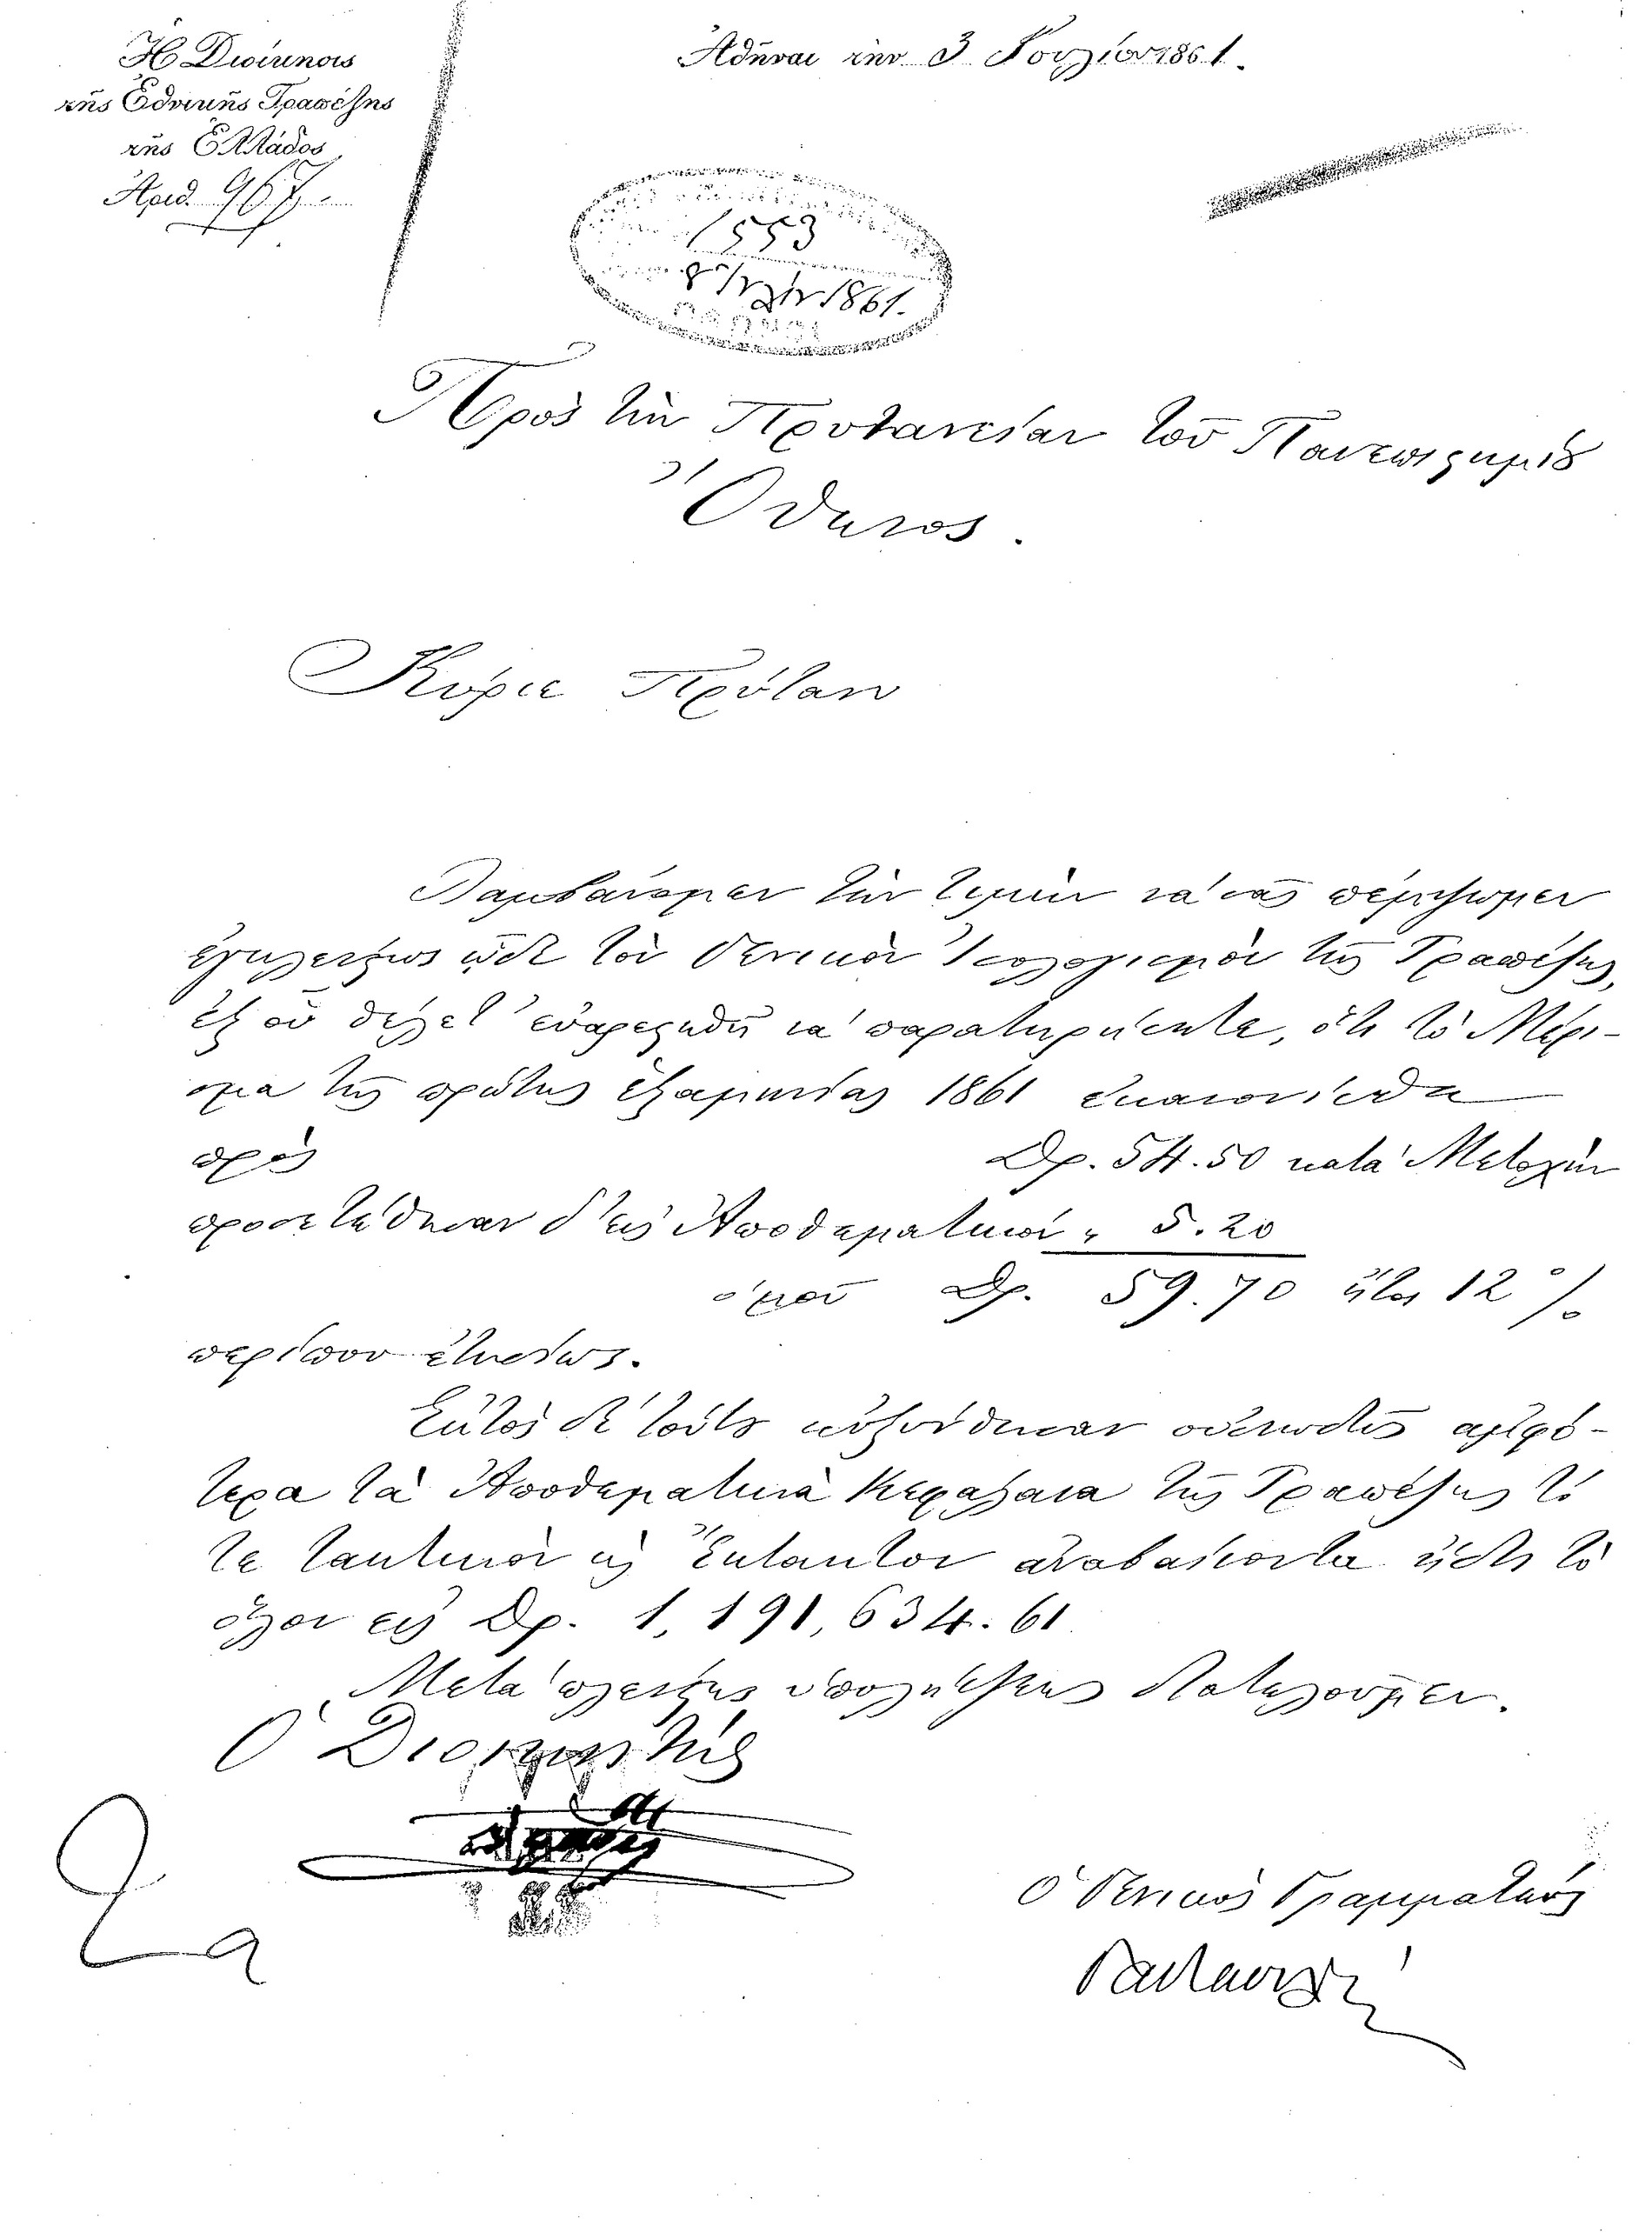 Ἡ Διοίκησις
τῆς Ἐθνικῆς Τραπέζης
τῆς Ἑλλάδος
Ἀριθ. 967
Ἀθῆναι τὴν 3 Ἰουλίου 1861.
1553
8 1861.
Πρὸς τὴν Πρυτανείαν τοῦ Πανεπιστημίου
Ὄθωνος.
Κύριε Πρύτανι
Λαμβάνομεν τὴν τιμὴν νὰ σᾶς πέμψωμεν
ἐγκλείστως ὧδε τὸν Γενικὸν Ἰσολογισμὸν τῆς Τραπέζης,
ἐξ οὗ θέλετ' εὐαρεστηθῆ νὰ παρατηρήσητε, ὅτι τὸ Μέρι-
σμα τῆς πρώτης ἑξαμηνίας 1861 ἐκανονίσθη
πρὸς Δρ. 54.50 κατὰ Μετοχὴν
προσετέθησαν δ' εἰς Ἀποθεματικὸν " 5.20
ὁμοῦ Δρ. 59.70 ἤτοι 12 %
περίπου ἐτησίως.
Ἐκτὸς δὲ τούτου ηὐξήνθησαν οὐσιωδῶς ἀμφό-
τερα τὰ Ἀποθεματικὰ Κεφάλαια τῆς Τραπέζης τό
τε τακτικὸν καὶ Ἔκτακτον ἀναβαίνοντα ἤδη τὸ
ὅλον εἰς Δρ. 1,191,634.61
Μετὰ πλείστης ὑπολήψεως διατελοῦμεν.
Ὁ Διοικητὴς
Ὁ Γενικὸς Γραμματεὺς